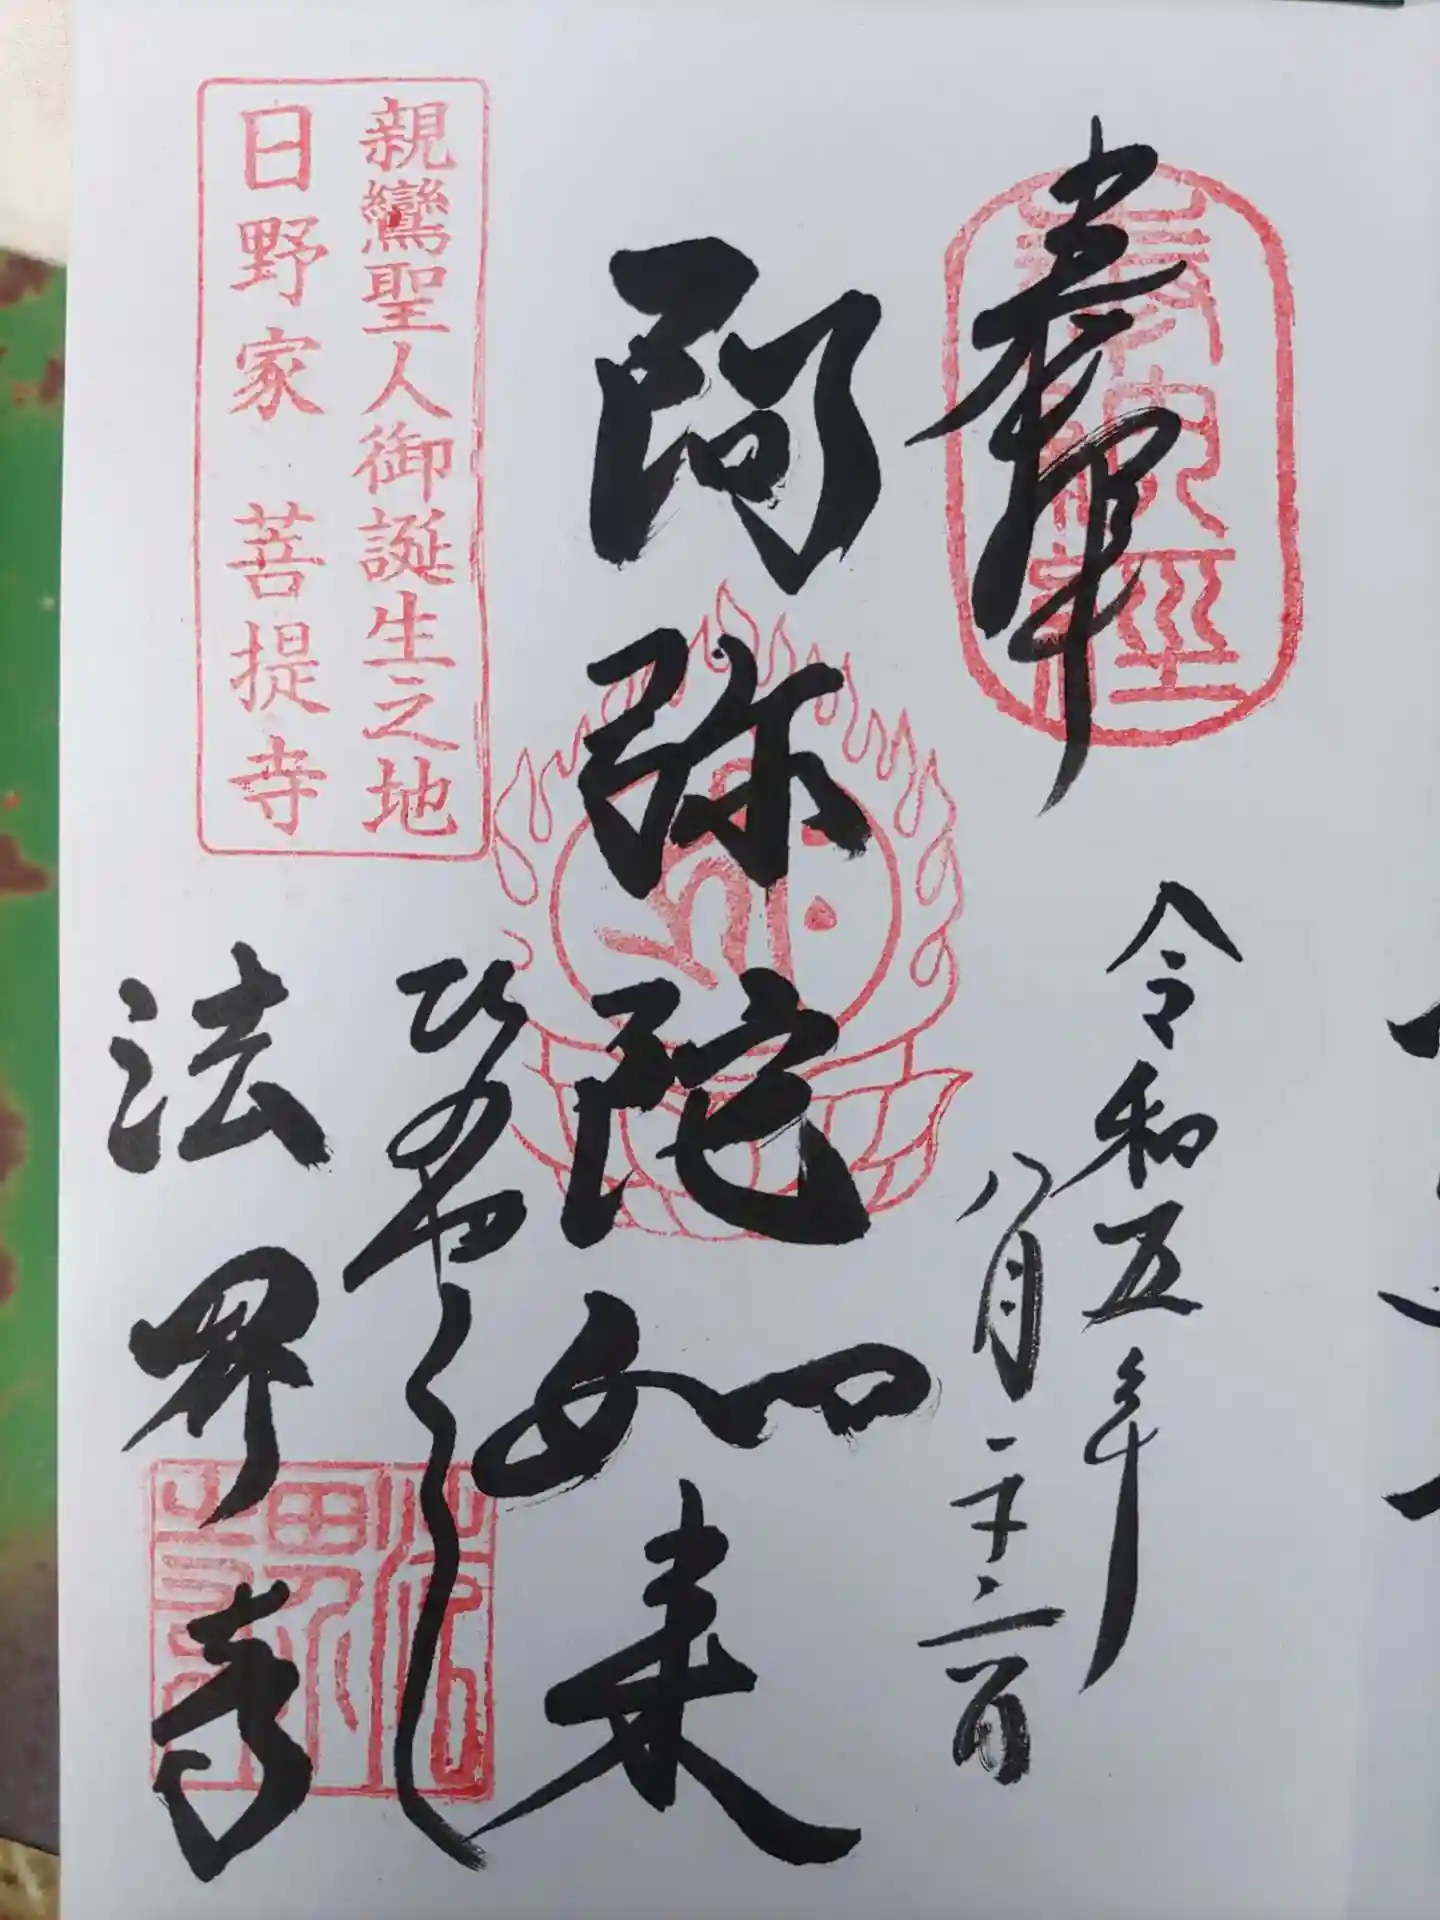 奉拝
奉納経
令和五年
八月二十二日
阿弥陀如来
ひのや
法界寺
親鸞聖人御誕生之地
日野家 菩提寺
法界寺